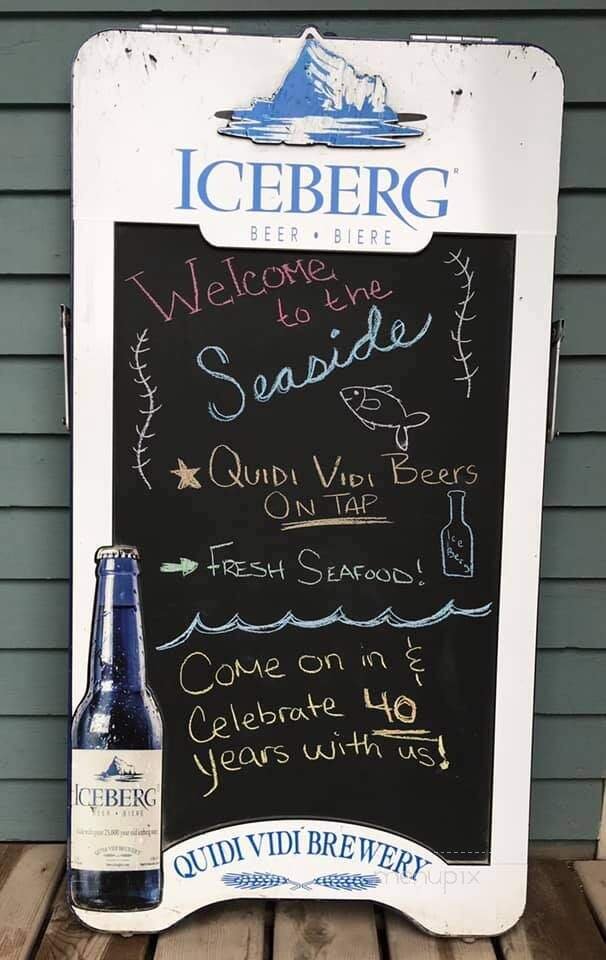 ICEBERG
BEER • BIERE
Welcome
to the
Seaside
QUIDI VIDI Beers
ON TAP
Ice
Berg
FRESH SEAFOOD!
Come on in &
Celebrate 40
years with us!
ICEBERG
BEER • BIERE
QUIDI VIDI BREWERY
menupix